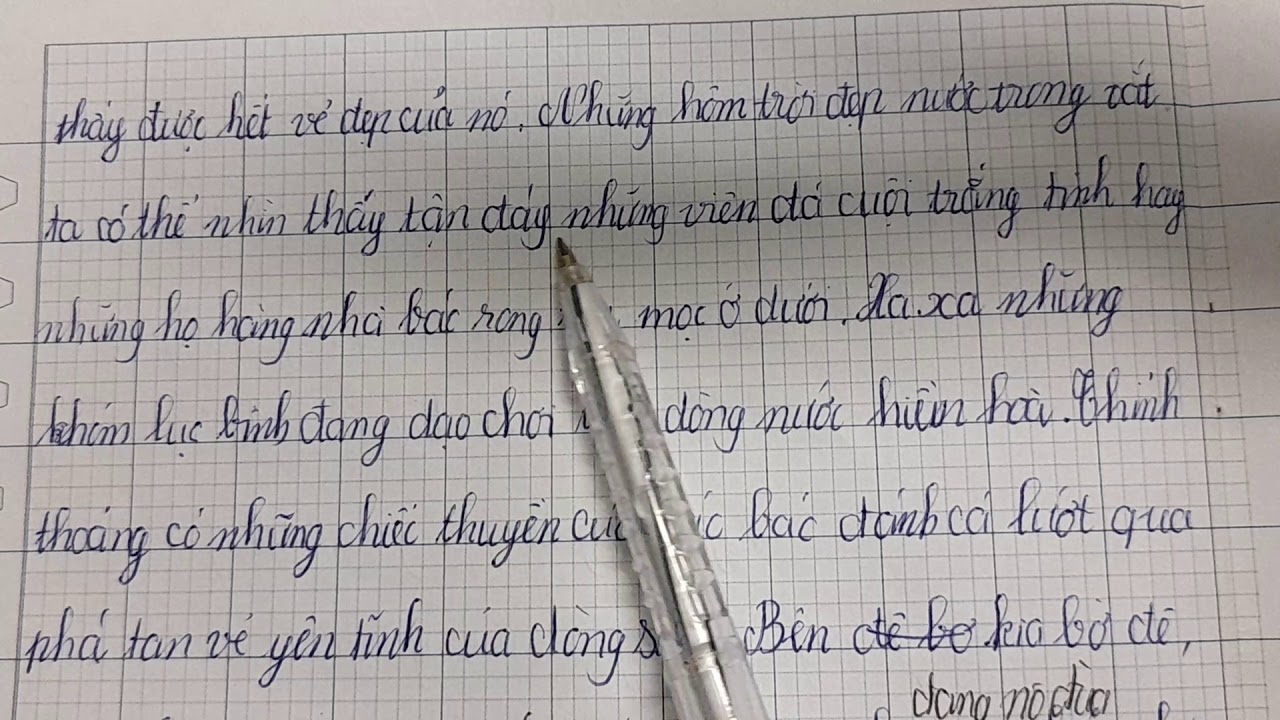 thấy được hết vẻ đẹp của nó. Những hôm trời đẹp nước trong vắt
ta có thể nhìn thấy tận đáy những viên đá cuội trắng tinh hay
những họ hàng nhà bác rong mọc ở dưới. Xa xa những
khóm lục bình đang dạo chơi dòng nước hiền hoà. Thỉnh
thoảng có những chiếc thuyền bác đánh cá lướt qua
phá tan vẻ yên tĩnh của dòng Bên đê bờ kia bờ đê,
đang nô đùa